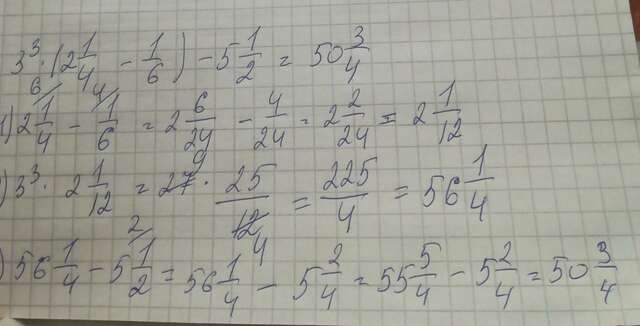 3³ · (2 1/4 - 1/6) - 5 1/2 = 50 3/4
1) 2 1/4 - 1/6 = 2 6/24 - 4/24 = 2 2/24 = 2 1/12
) 3³ · 2 1/12 = 27 · 25/12 = 225/4 = 56 1/4
) 56 1/4 - 5 1/2 = 56 1/4 - 5 2/4 = 55 5/4 - 5 2/4 = 50 3/4